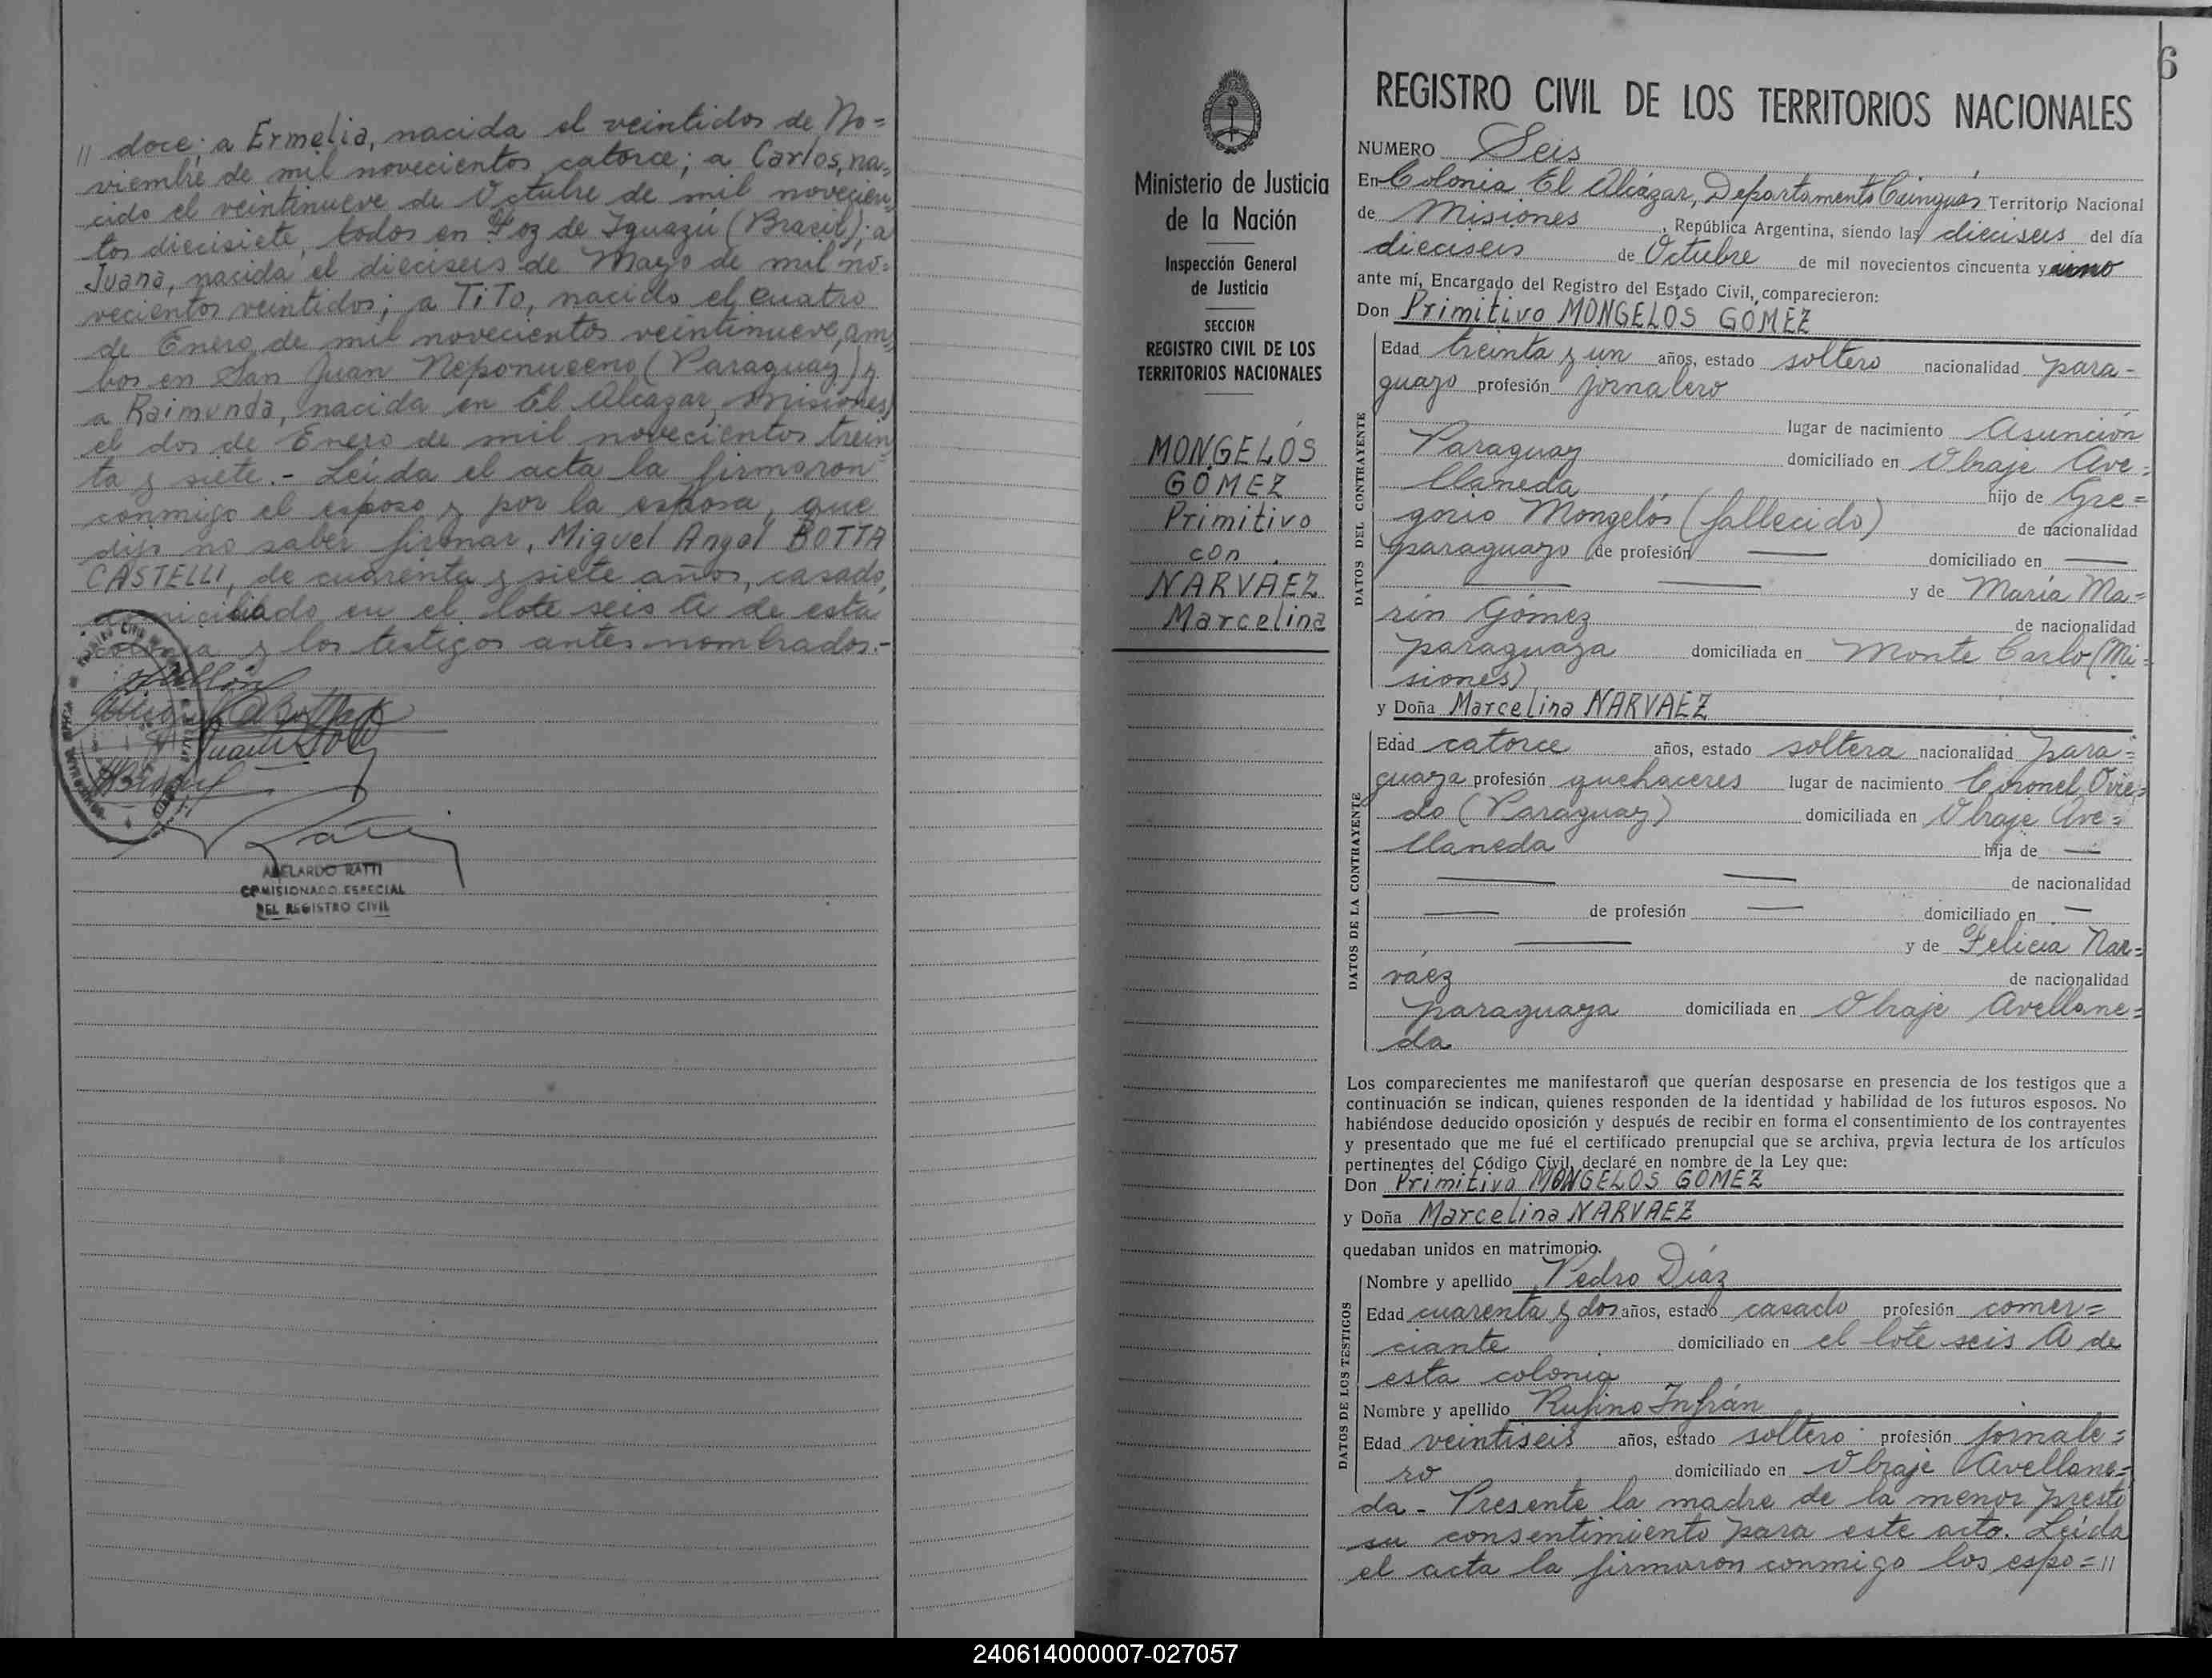 // doce; a Ermelia, nacida el veintidos de No=
viembre de mil novecientos catorce; a Carlos, na=
cido el veintinueve de Octubre de mil novecien=
tos diecisiete, todos en Foz de Iguazú (Brasil); a
Juana, nacida el dieciseis de Mayo de mil no=
vecientos veintidos; a TiTo, nacido el cuatro
de Enero de mil novecientos veintinueve, am=
bos en San Juan Neponuceno (Paraguay) y
a Raimunda, nacida en El Alcazar, Misiones,
el dos de Enero de mil novecientos trein
ta y siete.- Leída el acta la firmaron
conmigo el esposo y por la esposa, que
dijo no saber firmar, Miguel Angel BOTTA
CASTELLI, de cuarenta y siete años, casado,
domiciliado en el lote seis A de esta
colonia y los testigos antes nombrados.-
ABELARDO RATTI
COMISIONADO ESPECIAL
DEL REGISTRO CIVIL
6
Ministerio de Justicia
de la Nación
Inspección General
de Justicia
SECCION
REGISTRO CIVIL DE LOS
TERRITORIOS NACIONALES
MONGELÓS
GÓMEZ
Primitivo
con
NARVÁEZ
Marcelina
REGISTRO CIVIL DE LOS TERRITORIOS NACIONALES
NUMERO Seis
En Colonia El Alcázar, Departamento Cainguás Territorio Nacional
de Misiones, República Argentina, siendo las dieciseis del día
dieciseis de Octubre de mil novecientos cincuenta y uno
ante mí, Encargado del Registro del Estado Civil, comparecieron:
Don Primitivo MONGELÓS GÓMEZ
DATOS DEL CONTRAYENTE
Edad treinta y un años, estado soltero nacionalidad para-
guayo profesión jornalero
lugar de nacimiento Asunción
Paraguay domiciliado en Obraje Ave=
llaneda hijo de Gre=
gorio Mongelós (fallecido) de nacionalidad
paraguayo de profesión — domiciliado en —
— — y de María Ma=
rín Gómez de nacionalidad
paraguaya domiciliada en Monte Carlo (Mi=
siones)
y Doña Marcelina NARVAEZ
DATOS DE LA CONTRAYENTE
Edad catorce años, estado soltera nacionalidad para=
guaya profesión quehaceres lugar de nacimiento Coronel Ovie=
do (Paraguay) domiciliada en Obraje Ave=
llaneda hija de —
— — de nacionalidad
— de profesión — domiciliado en —
— y de Felicia Nar=
váez de nacionalidad
paraguaya domiciliada en Obraje Avellane=
da
Los comparecientes me manifestaron que querían desposarse en presencia de los testigos que a
continuación se indican, quienes responden de la identidad y habilidad de los futuros esposos. No
habiéndose deducido oposición y después de recibir en forma el consentimiento de los contrayentes
y presentado que me fué el certificado prenupcial que se archiva, previa lectura de los artículos
pertinentes del Código Civil, declaré en nombre de la Ley que:
Don Primitivo MONGELOS GOMEZ
y Doña Marcelina NARVAEZ
quedaban unidos en matrimonio.
DATOS DE LOS TESTIGOS
Nombre y apellido Pedro Díaz
Edad cuarenta y dos años, estado casado profesión comer=
ciante domiciliado en el lote seis A de
esta colonia
Nombre y apellido Rufino Infrán
Edad veintiseis años, estado soltero profesión jornale=
ro domiciliado en Obraje Avellane=
da - Presente la madre de la menor prestó
su consentimiento para este acto. Leída
el acta la firmaron conmigo los espo=//
240614000007-027057